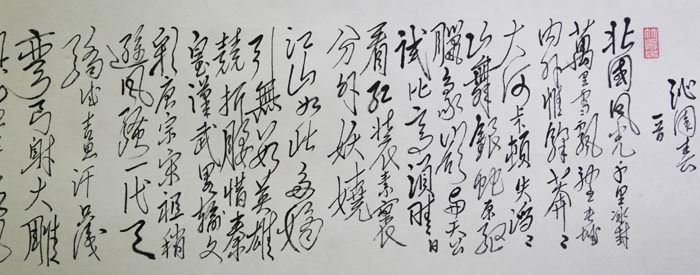 沁園春
雪
北國風光千里冰封
萬里雪飄望長城
内外惟餘莽々
大河上下頓失滔々
山舞銀蛇原馳
臘象欲與天公
試比高須晴日
看紅裝素裹
分外妖嬈
江山如此多嬌
引無數英雄
競折腰惜秦
皇漢武略輸文
彩唐宗宋祖稍
遜風騷一代天
驕成吉思汗只識
彎弓射大雕